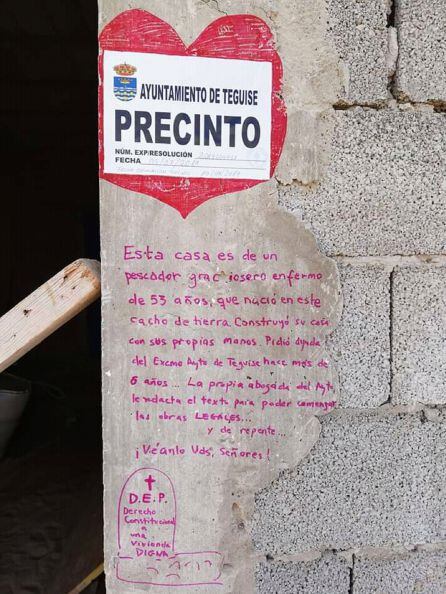 AYUNTAMIENTO DE TEGUISE
PRECINTO
NÚM. EXP/RESOLUCIÓN
FECHA
Esta casa es de un
pescador graciosero enfermo
de 53 años, que nació en este
cacho de tierra. Construyó su casa
con sus propias manos. Pidió ayuda
del Excmo Ayto de Teguise hace más de
6 años... La propia abogada del Ayto
le redacta el texto para poder comenzar
las obras LEGALES...
y de repente...
¡Véanlo Uds, Señores!
D.E.P.
Derecho
Constitucional
a
una
Vivienda
DIGNA